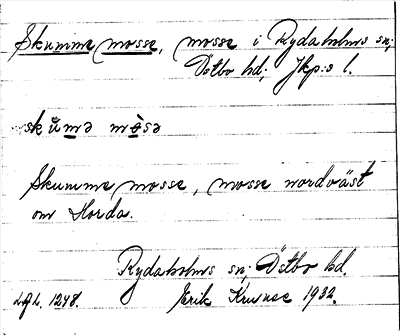 Skumme mosse, mosse i Rydaholms sn;
Östbo hd; Jkp:s l.
skŭmə mòsə
Skumme mosse, mosse nordväst
om Horda.
Rydaholms sn; Östbo hd,
Lgh. 1248. Erik Kruuse 1932.